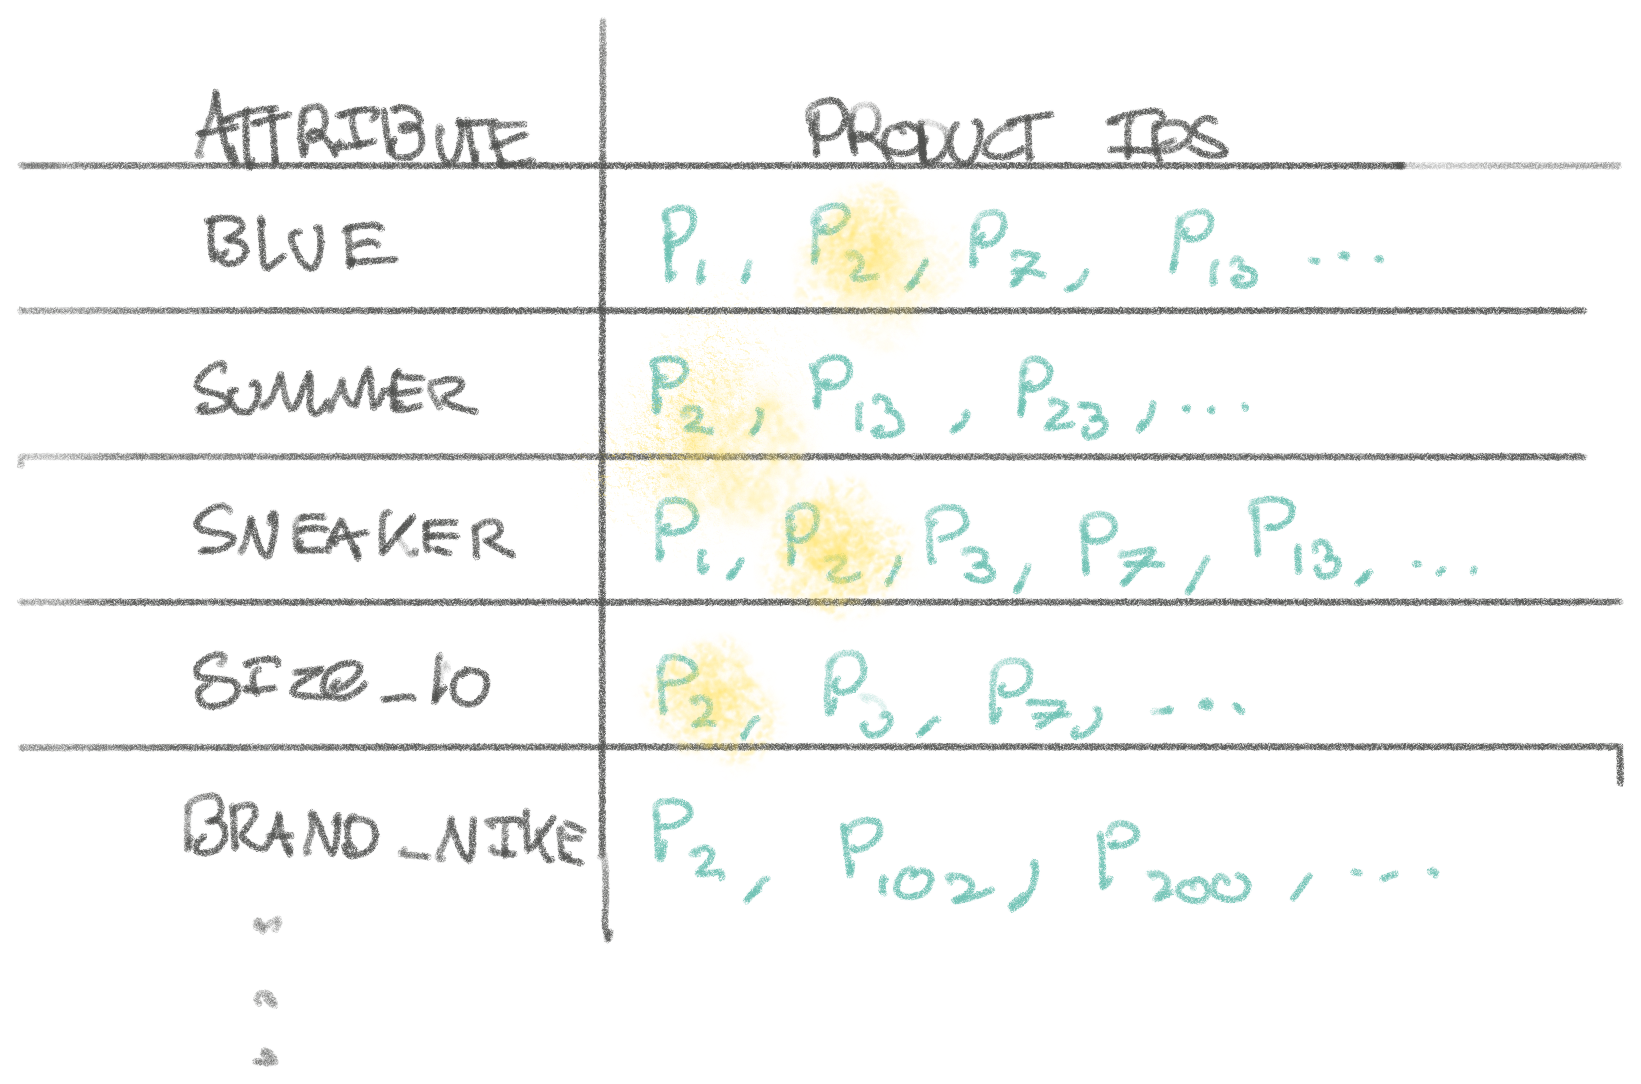 ATTRIBUTE PRODUCT IDS
BLUE P1, P2, P7, P13 ...
SUMMER P2, P13, P23, ...
SNEAKER P1, P2, P3, P7, P13, ...
SIZE_10 P2, P3, P7, ...
BRAND_NIKE P2, P102, P200, ...